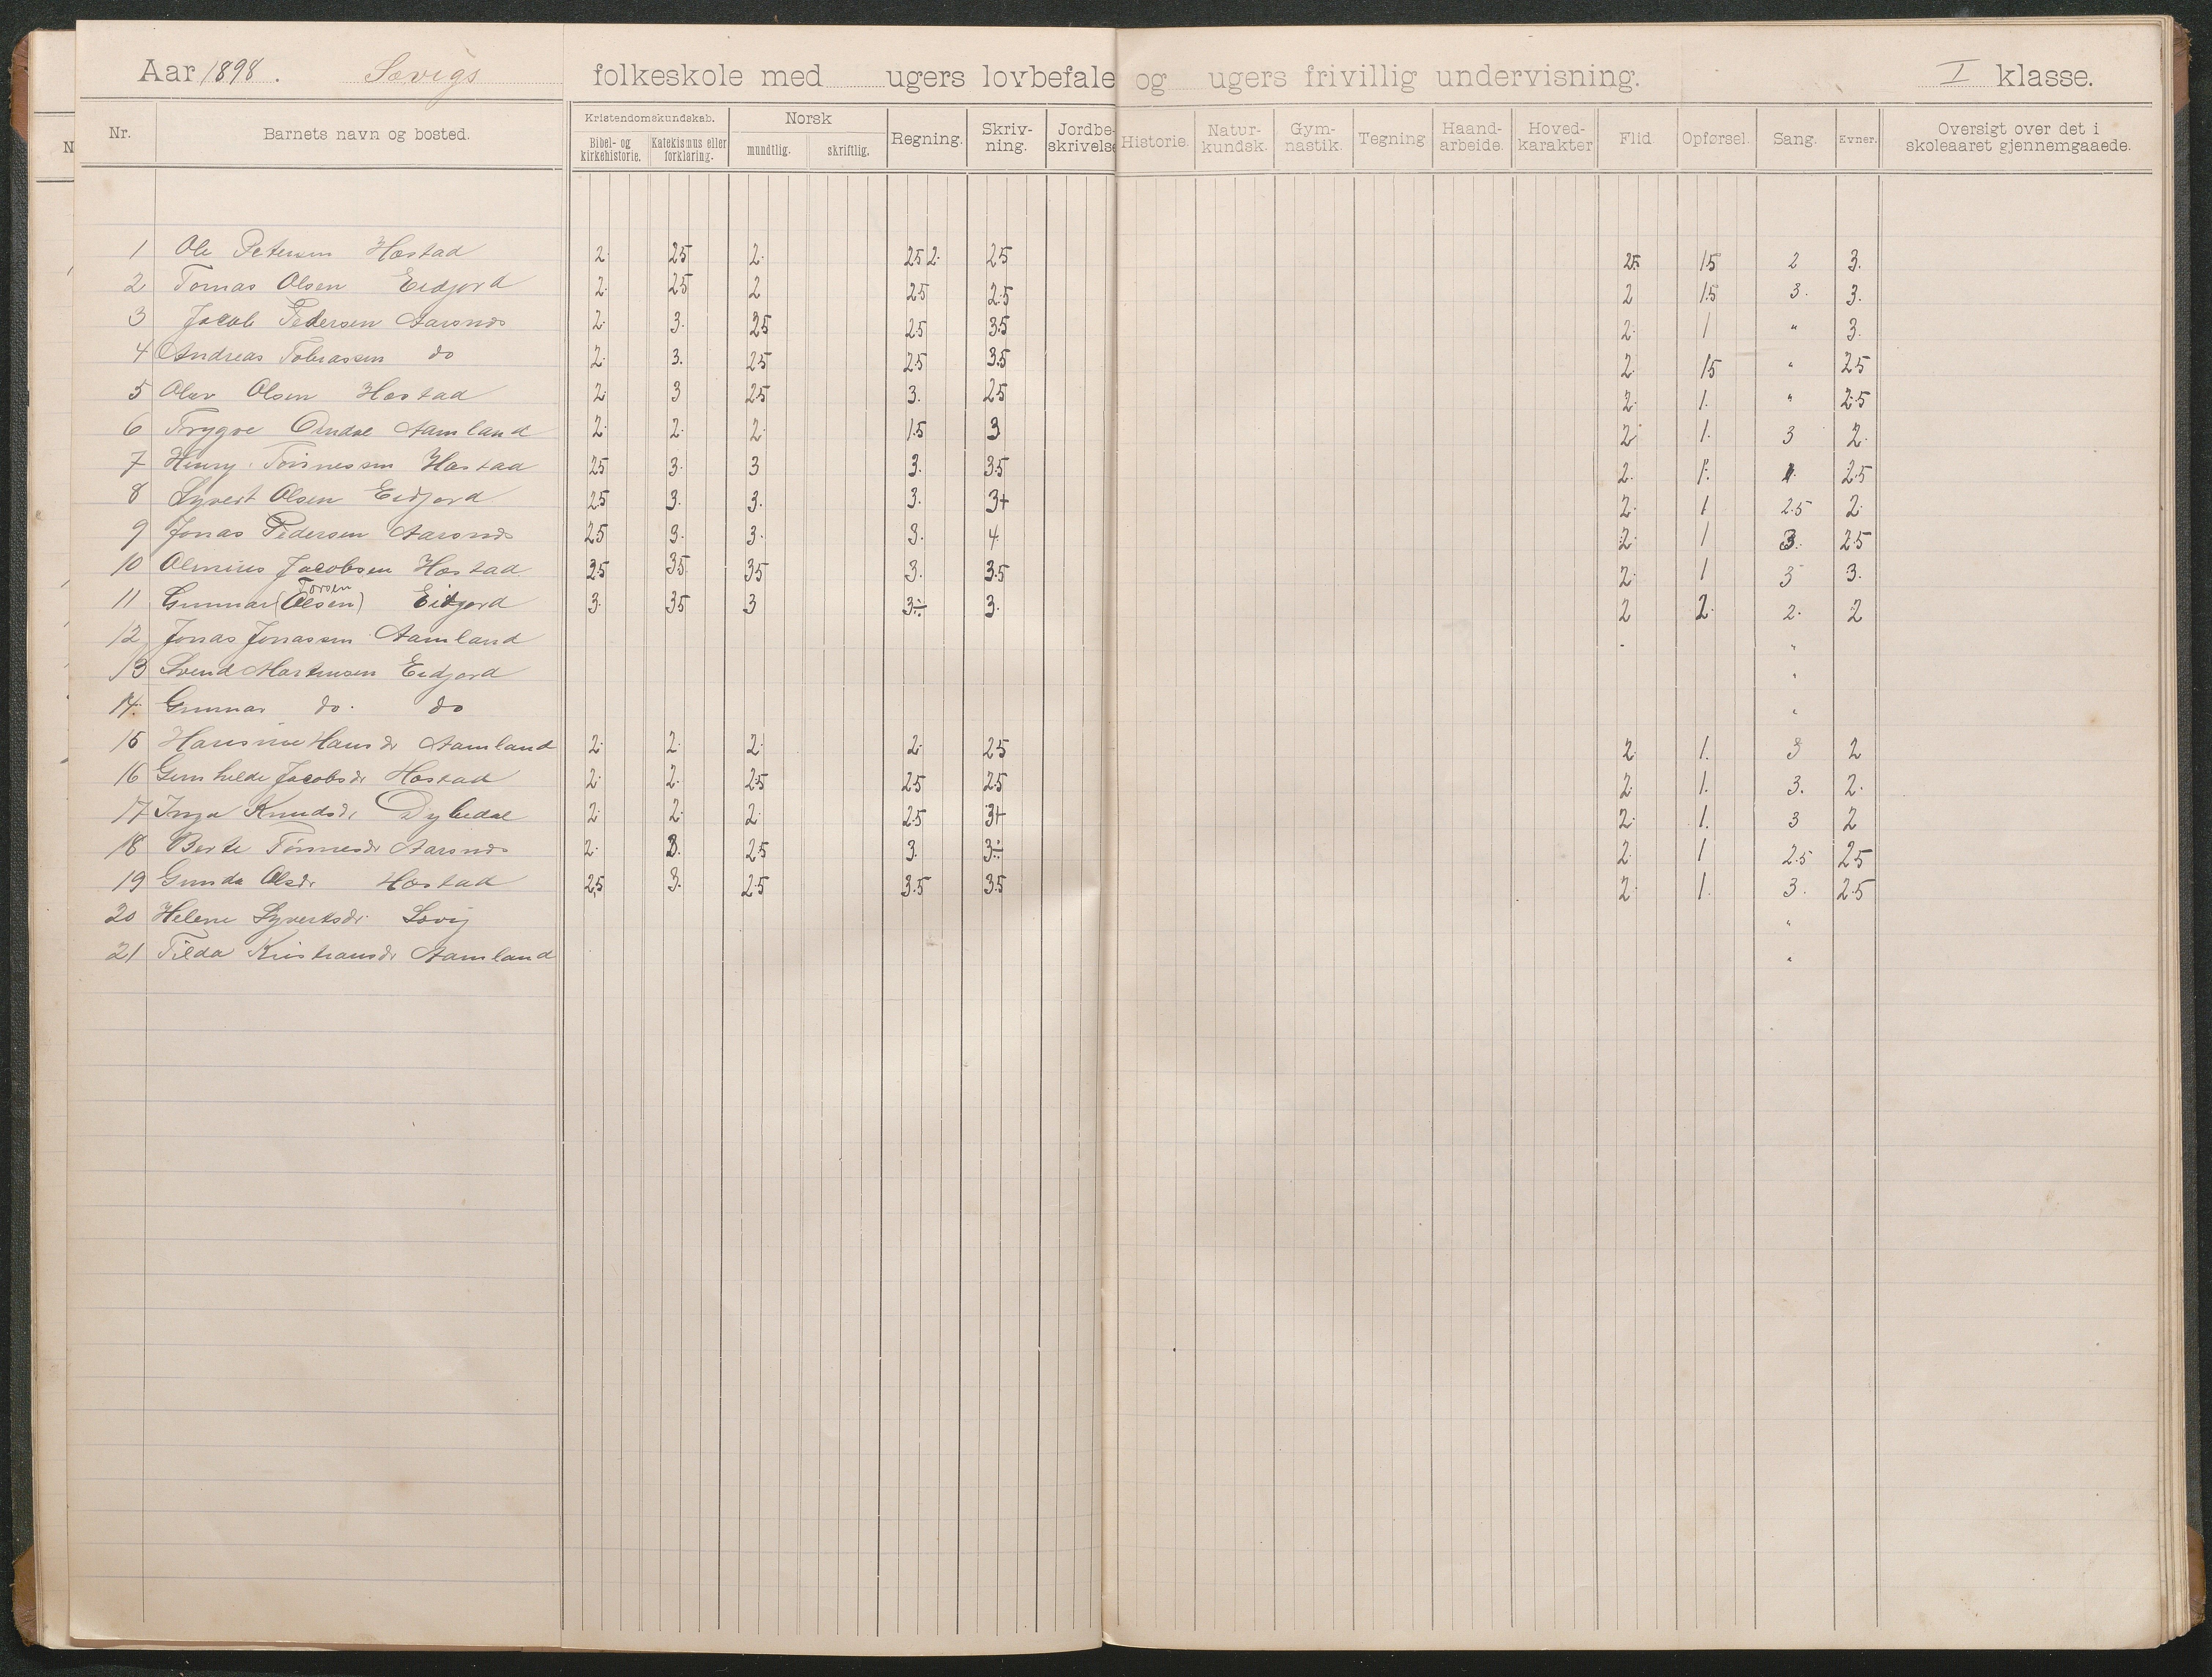 Aar 1898. Søvigs folkeskole med ugers lovbefale og ugers frivillig undervisning. I klasse.
Nr. Barnets navn og bosted. Kristendomskundskab. Bibel- og kirkehistorie. Katekismus eller forklaring. Norsk mundtlig. skriftlig. Regning. Skriv-ning. Jordbe-skrivelse Historie. Natur-kundsk. Gym-nastik. Tegning Haand-arbeide. Hoved-karakter Flid Opførsel. Sang. Evner. Oversigt over det i skoleaaret gjennemgaaede.
1 Ole Petersen Hæstad 2. 25 2. 25 2. 25 25 15 2 3.
2 Tomas Olsen Eidjord 2. 25 2 25 2.5 2 1.5 3. 3.
3 Jacob Pedersen Aarsnes 2. 3. 25 25 35 2. 1 " 3.
4 Andreas Tobiassen do 2. 3. 25 25 35 2. 15 " 25
5 Olav Olsen Hæstad 2. 3 25 3. 25 2. 1. " 2.5
6 Trygve Omdal Aamland 2. 2. 2. 1.5 3 2. 1. 3 2.
7 Henry Tønnessen Hæstad 25 3. 3 3. 35 2. 1. 4. 2.5
8 Syvert Olsen Eidjord 2.5 3. 3. 3. 3+ 2. 1 2.5 2.
9 Jonas Pedersen Aarsnes 25 3. 3. 3. 4 2. 1 3. 25
10 Olenius Jacobsen Hæstad 35 35 35 3. 3.5 2. 1 3 3.
11 Gunnar (Olsen) Torsen Eidjord 3. 35 3 3÷ 3. 2 2. 2. 2
12 Jonas Jonassen Aamland - "
13 Svend Martinsen Eidjord "
14. Gunnar do. do "
15 Hansine Hansdr Aamland 2. 2. 2. 2. 25 2. 1. 3 2
16 Gunhilde Jacobsdr Hæstad 2. 2. 2.5 25 2.5 2. 1. 3. 2.
17 Inga Knudsdr Dybedal 2. 2. 2. 2.5 3+ 2. 1. 3 2
18 Berte Tønnesdr Aarsnes 2. 3. 25 3. 3÷ 2. 1 2.5 25
19 Gunda Olsdr Hæstad 2,5 3. 2.5 3.5 35 2. 1. 3. 2.5
20 Helene Syvertsdr Søvig "
21 Tilda Kristiansdr Aamland "